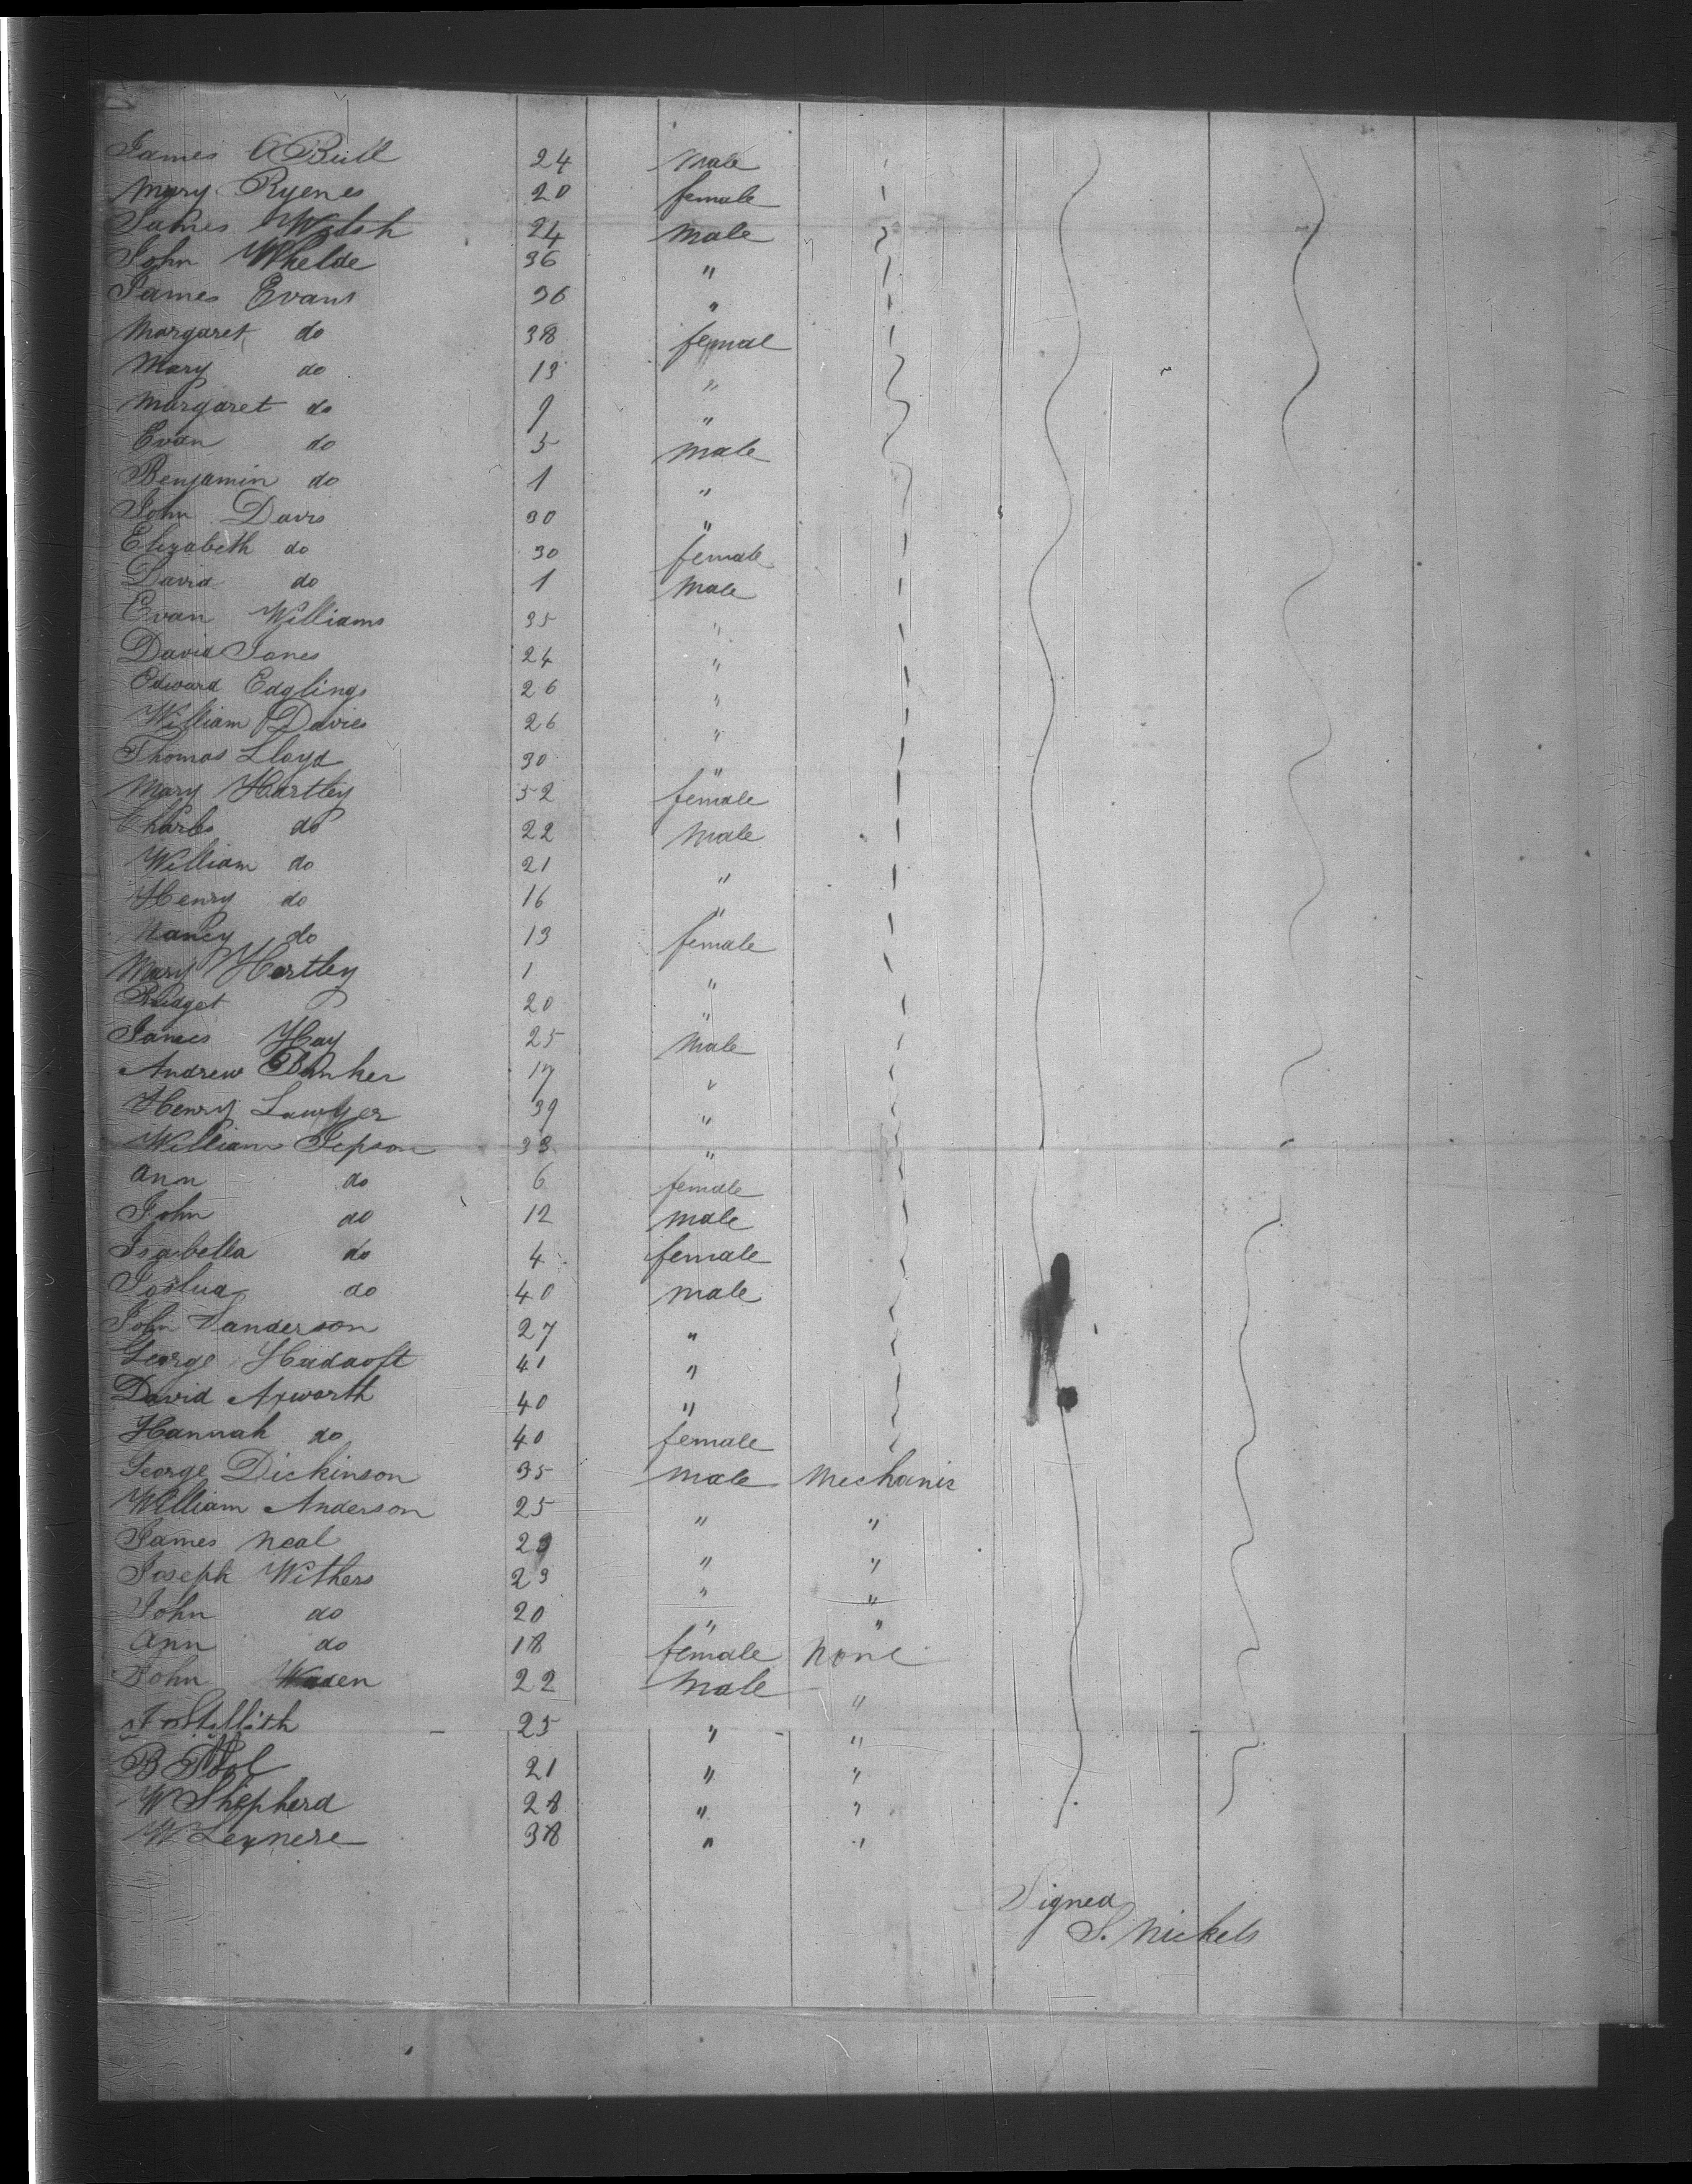 James O Buil 24 male
Mary Ryenes 20 female
James Walsh 24 male
John Whelde 36 "
James Evans 36 "
Margaret do 38 femal
Mary do 13 "
Margaret do 9 "
Evan do 5 male
Benjamin do 1 "
John Davis 30 "
Elizabeth do 30 female
David do 1 male
Evan Williams 35 "
David Jones 24 "
Edward Edglings 26 "
William Davies 26 "
Thomas Lloyd 30 "
Mary Hartley 52 female
Charles do 22 male
William do 21 "
Henry do 16 "
Nancy do 13 female
Mary Hartley 1 "
Bridget 20 "
James Hay 25 male
Andrew Bunker 17 "
Henry Lawyer 39 "
William Jepson 33 "
Ann do 6 female
John do 12 male
Isabella do 4 female
Joshua do 40 male
John Sanderson 27 "
George 41 "
David Axworth 40 "
Hannah do 40 female
George Dickinson 35 male Mechanic
William Anderson 25 " "
James Neal 29 " "
Joseph Withers 23 " "
John do 20 " "
Ann do 18 female none
John Waden 22 male "
25 " "
B 21 " "
W Shepherd 28 " "
W Leynere 38 " "
Signed
S. Nickels